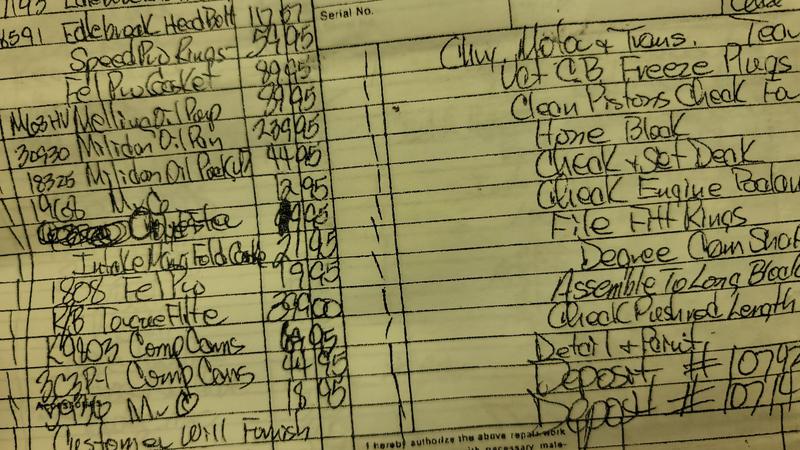 1193
K591 Edelbrock Head Bolt 117 57
Speed Pro Rings 59 95
Fel Pro Gasket 89 95
M63HV Melling Oil Pump 89 95
30930 Milidon Oil Pan 239 95
18325 Milidon Oil Pack 44 95
1968 Mr Co 12 95
95
Intake Manifold Gaske 21 95
1808 Fel Pro 19 95
RB Torque Flite 399 00
K9803 Comp Cams 95
3CBP-1 Comp Cams 44 95
Mr Co 18 95
Customer Will Furnish
Serial No.
Chry. Motor & Trans. Tear
Vat CB Freeze Plugs
Clean Pistons Check
Hone Block
Check & Set Deck
Check Engine Balan
File Fitt Rings
Degree Cam Shaf
Assemble To Long Block
Check Pushrod Length
Detail & Paint
Deposit #
Deposit #
I hereby authorize the above repair work
necessary mate-